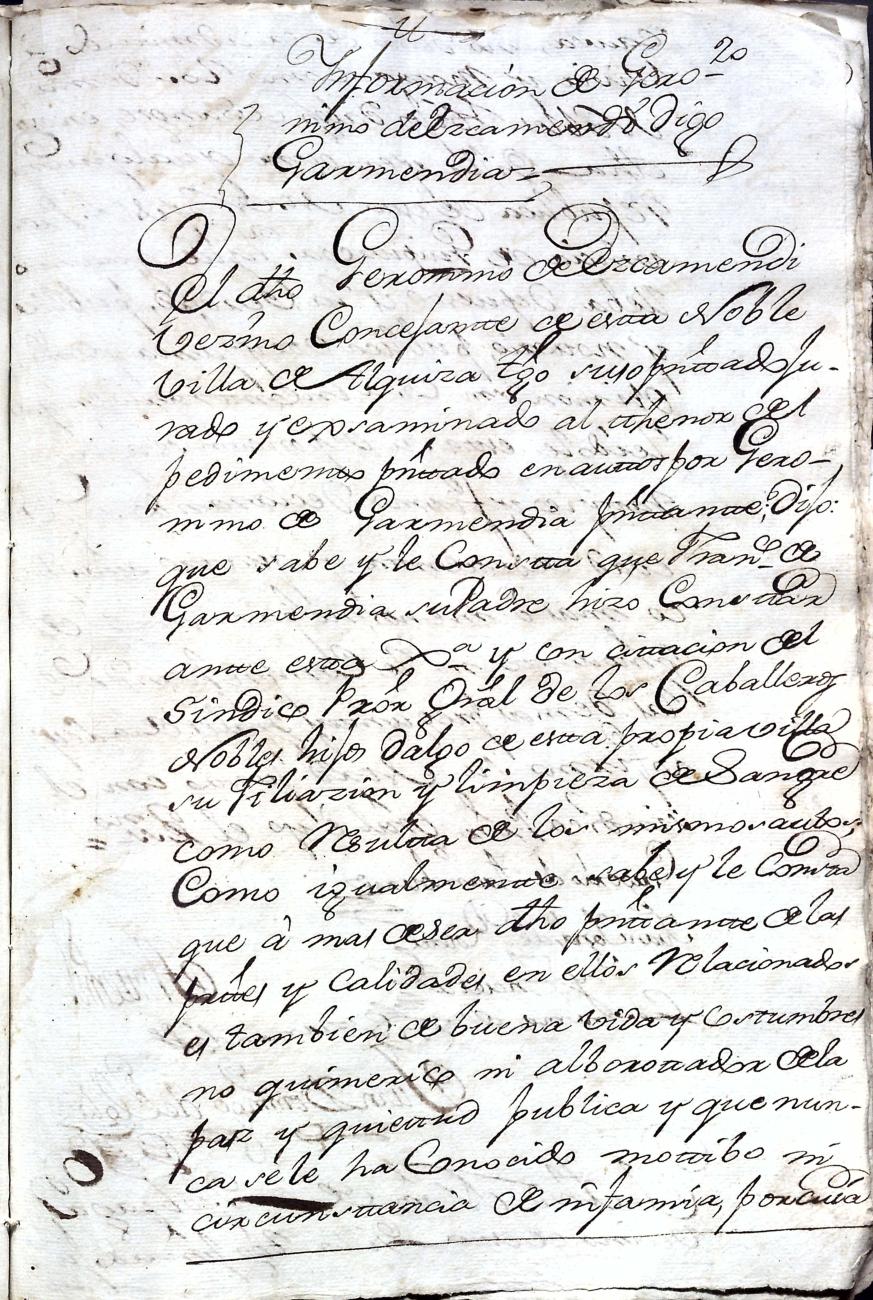 Informacion de Gero-
nimo de Ezcamendi digo
Garmendia
El dho Geronimo de Ezcamendi
vezino Concejante de esta Noble
villa de Alquiza tgo suso pñttado ju-
rado y exsaminado al tthenor del
pedimento pñttado en auttos por Gero-
nimo de Garmendia pñttante: Dijo:
que sabe y le Constta que Franco de
Garmendia su Padre hizo Consttar
antte estta Xa y con cittacion del
Sindico Pror Gral de los Caballeros
Nobles hijos dalgo de estta propia villa
su Filiazion y limpieza de Sangre
como Resultta de los mismos autos;
Como igualmentte sabe y le Constta
que à mas de sea dho pñttantte de las
prttes y Calidades en ellos Relacionados
es tambien de buena vida y Costumbres
no quimerico ni alborottador de la
paz y quiettud publica y que nun-
ca se le ha Conocido mottibo ni
circunsttancia de infamia, por cuia